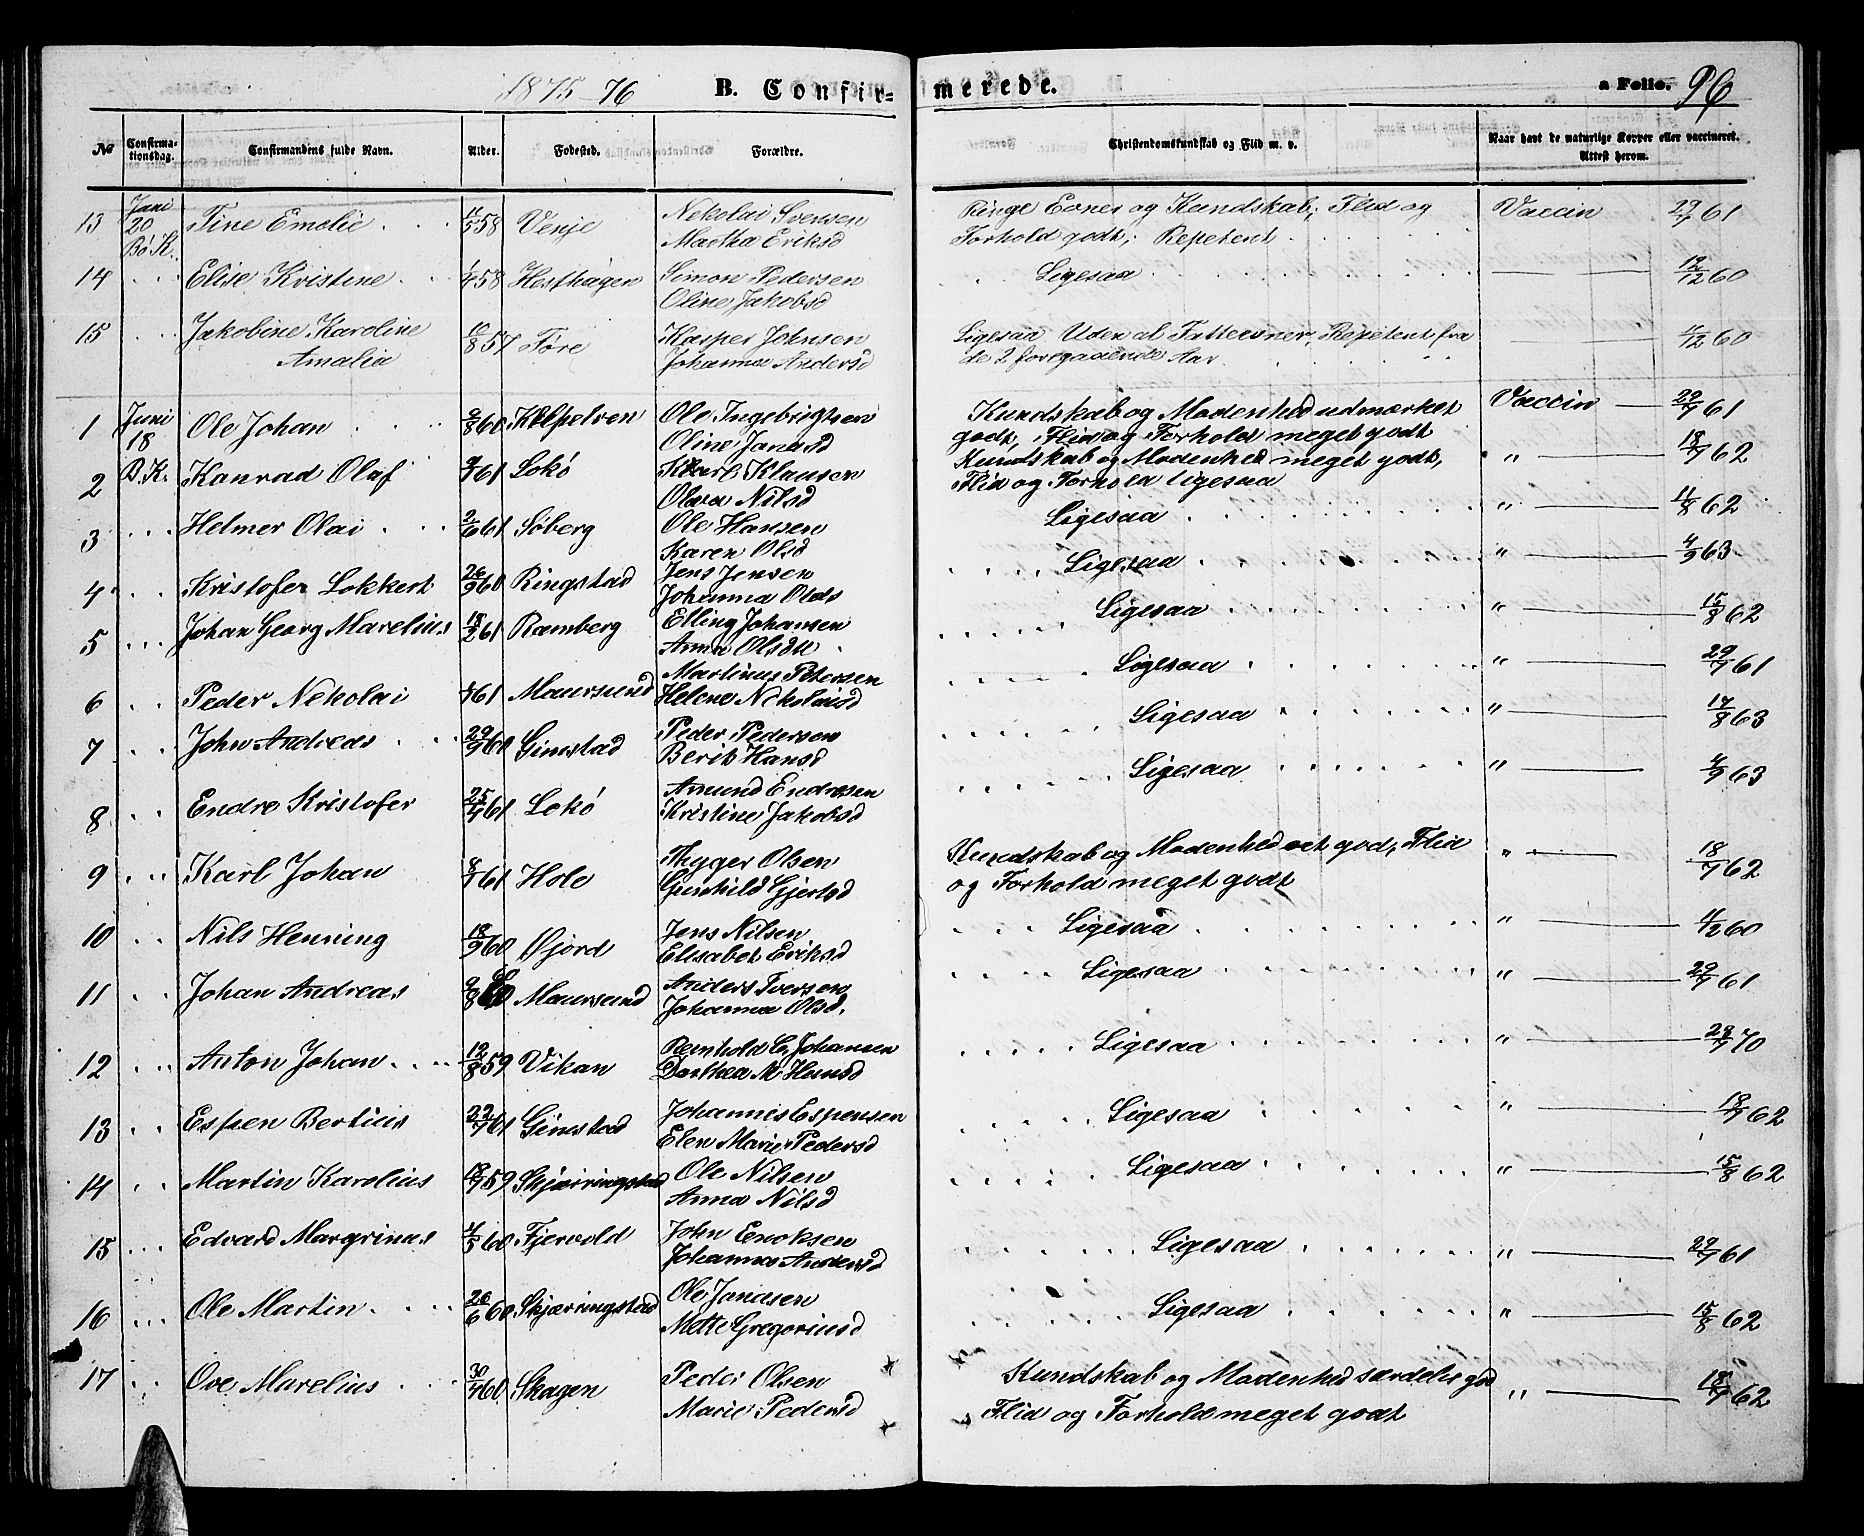 1875-76 B. Confirmerede. a Folio. 96
№ Confirmationsdag. Confirmandens fulde Navn. Alder. Fødested. Forældre. Christendomskundskab og Flid m. v. Naar havt de naturlige Kopper eller vaccineret. Attest herom.
13 Juni 20 Bø K. Tine Emelie 11/5 58 Venje Nekolai Svensen Ringe Evner og Kundskab; Flid og Vaccin 29/7 61
Martha Eriksd Forhold godt; Repetent
14 Elise Kristine 1/4 58 Hesthagen Simon Pedersen Ligesaa 12/12 60
Oline Jakobsd
15 Jakobine Karoline 10/8 57 Føre Kasper Johnsen Ligesaa Uden al Fatteevner, Repetent fra 4/12 60
Amalia Johanna Andersd de 2 foregaaende Aar
1 Juni 18 Ole Johan 2/8 60 Ole Ingebrigtsen Kundskab og Modenhed udmærket Vaccin 29/7 61
Oline Janasd godt, Flid og Forhold meget godt
2 B.K. Kanrad Olaf 9/7 61 Lokø Klausen Kundskab og Modenhed meget godt, " 18/7 62
Olava Nilsd Flid og Forhold ligesaa
3 Helmer Olai 2/6 61 Søberg Ole Hansen Ligesaa " 11/8 62
Karen Olsd
4 Kristofer Lokkert 26/9 60 Ringstad Jens Jensen Ligesaa " 4/9 63
Johanna Olds
5 Johan Georg Marelius 18/2 61 Ramberg Elling Johansen Ligesaa " 15/8 62
Anna Olsdtt
6 Peder Nekolai 61 Maursund Martinus Petersen Ligesaa " 29/7 61
Helene Nekolaisd
7 John Andreas 29/9 60 Gimstad Peder Pedersen Ligesaa " 17/8 63
Berit Hansd
8 Endre Kristofer 25/4 61 Lokø Amund Endresen Ligesaa " 4/9 63
Kristine Jakobsd
9 Karl Johan 8/7 61 Hole Thyger Olsen Kundskab og Modenhed ret god, Flid " 18/7 62
Gunhild Gjertsd og Forhold meget godt
10 Nils Henning 18/9 60 Øjord Jens Nilsen Ligesaa " 4/2 60
Elisabet Eriksd
11 Johan Andreas 9/8 60 Maursund Anders Iversen Ligesaa " 29/7 61
Johanna Olsd.
12 Anton Johan 12/8 59 Vikan Reinhold G. Johansen Ligesaa " 28/7 70
Dorthea M. Hansd
13 Espen Bertius 22/7 61 Gimstad Johannis Espensen Ligesaa " 18/7 62
Elen Marie Pedersd
14 Martin Karelius 18/7 59 Skjærringstad Ole Nilsen Ligesaa " 15/8 62
Anna Nilsd
15 Edvard Margrinus 4/5 60 Fjervold John Enoksen Ligesaa " 29/7 61
Johanna Andersd
16 Ole Martin 26/6 60 Skjærringstad Ole Janasen Ligesaa " 15/8 62
Mette Gregoriusd
17 Ove Marelius 30/7 60 Skagen Peder Olsen Kundskab og Modenhed særdeles god " 18/7 62
Marie Pedersd Flid og Forhold meget godt